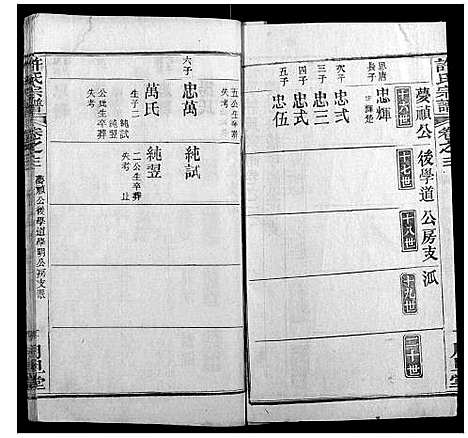 許氏宗譜
卷之三
夢禎公後學道公房支派
十六世
十七世
十八世
十九世
二十世
長子
忠輝
次子
忠式
三子
忠三
四子
忠式
五子
忠伍
五公生卒葬
失考
六子
忠萬
純試
萬氏
生子二
純試
純翌
公氏生卒葬
失考
純翌
二公生卒葬
失考
許氏宗譜
卷之三
夢禎公後學道學明公房支派